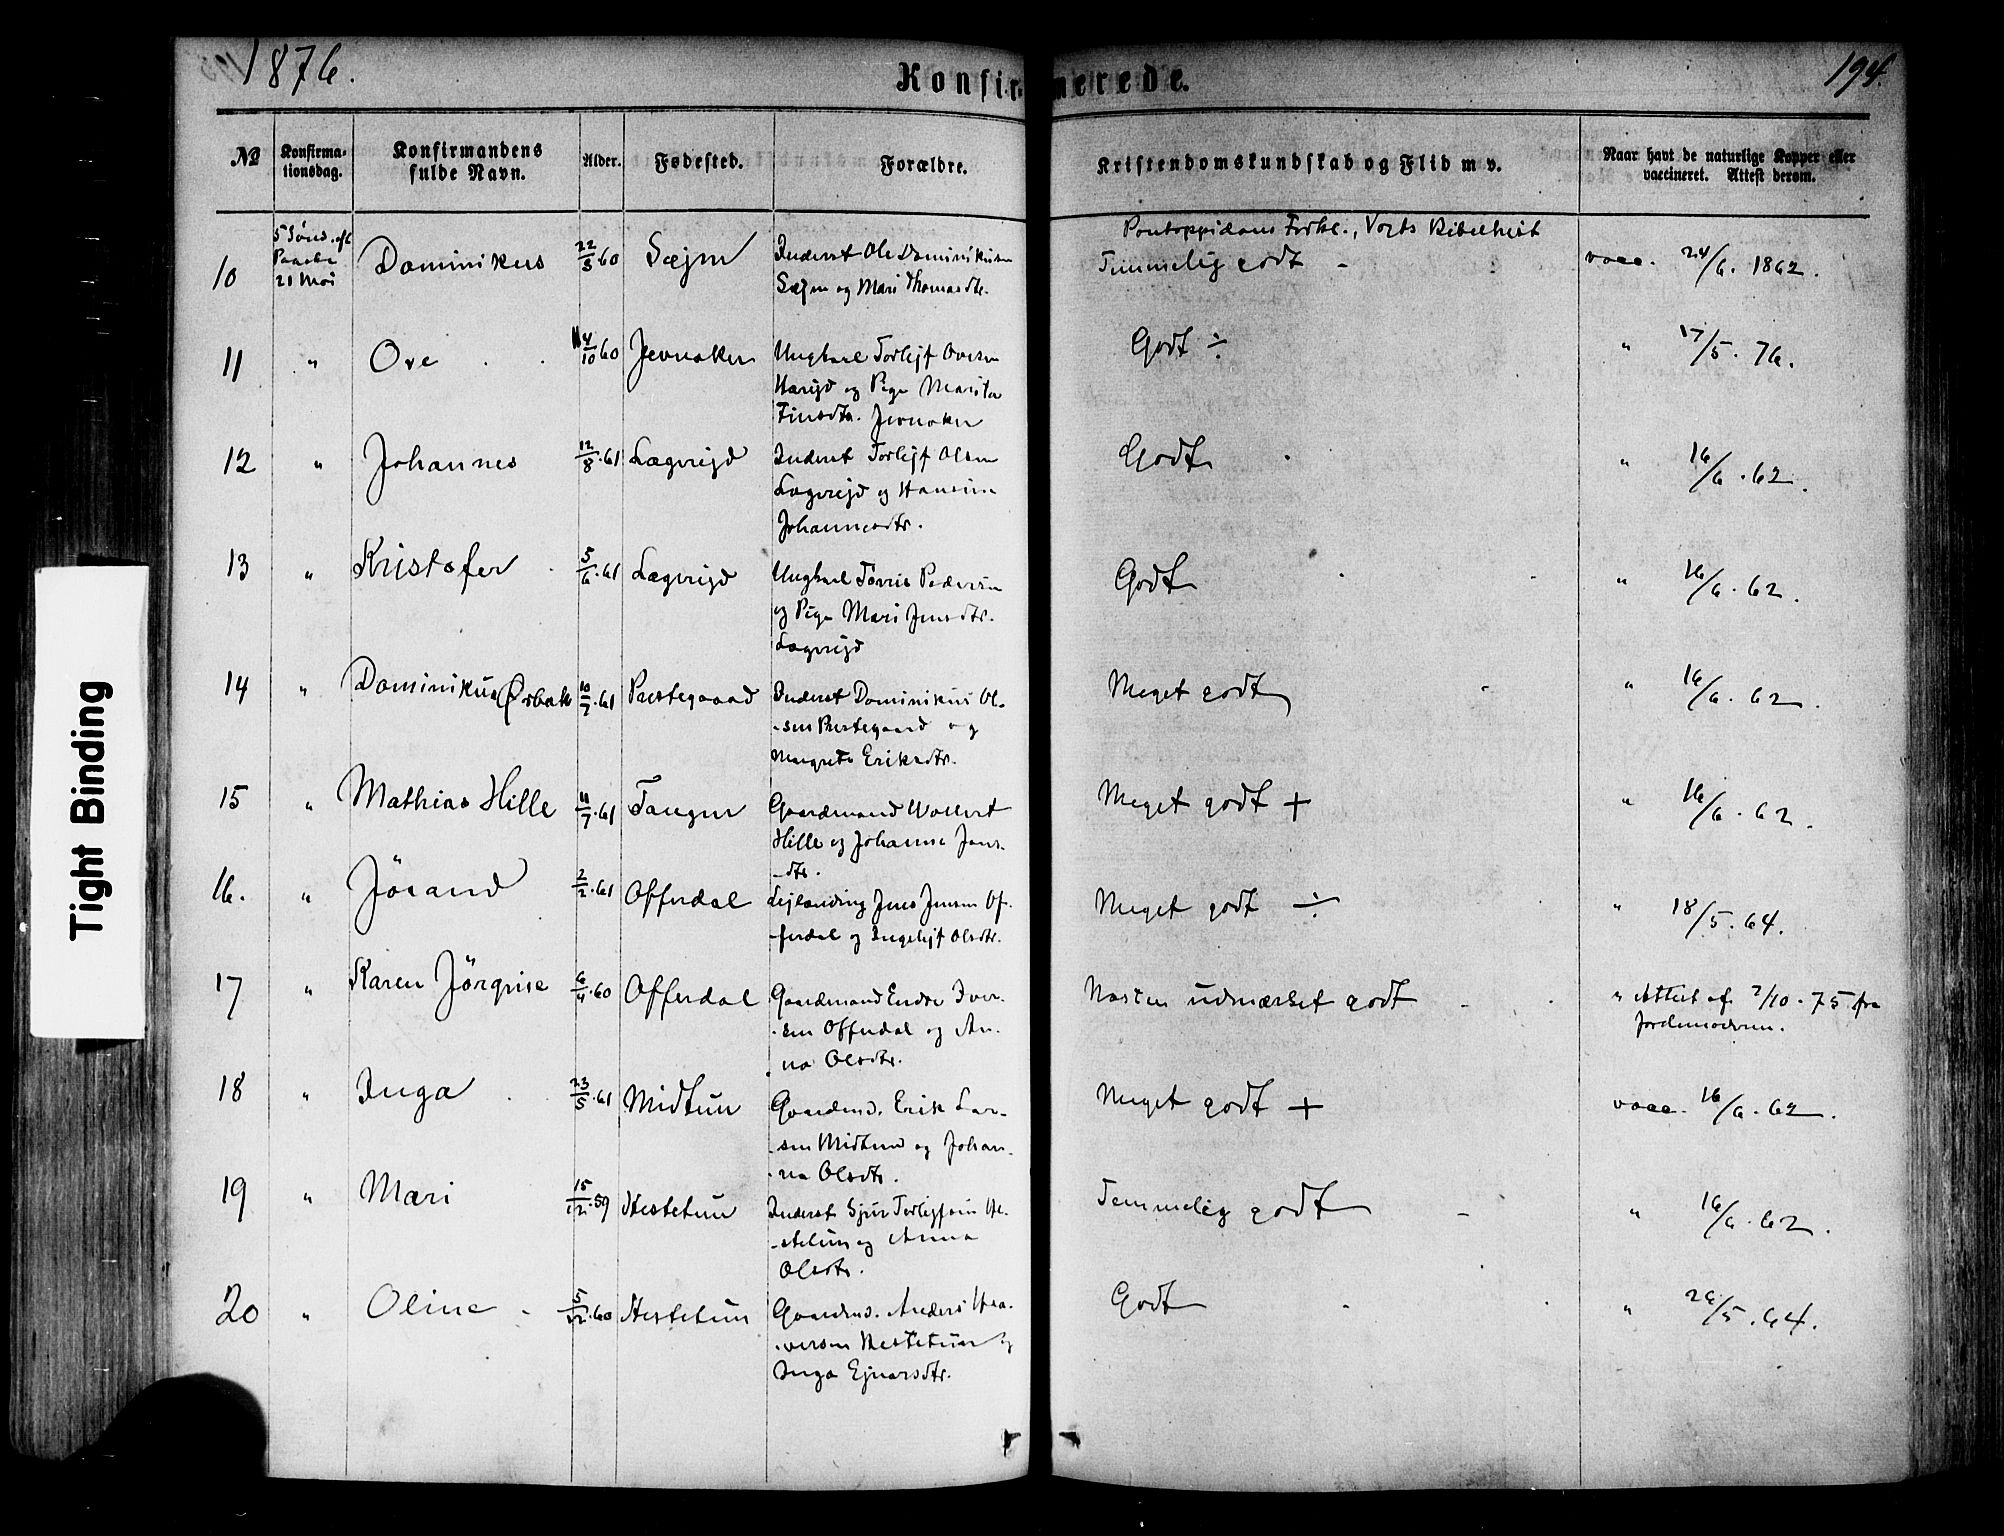 1876.
194.
Konfirmerede.
№
Konfirma-
tionsdag.
Konfirmandens
fulde Navn.
Alder.
Fødested.
Forældre.
Kristendomskundskab og Flid m v.
Naar havt de naturlige Kopper eller
vaccineret. Attest derom.
10
5 Sønd. eft
Paaske
21 Mai
Dominikus
22/3 60
Sæjm
Inderst Ole Dominikusen
Sæjm og Mari Thomasdtr.
Pontoppidans Forkl., Vogts Bibelhist
Temmelig godt -
vacc. 24/6. 1862.
11
"
Ove
4/10 60
Jevnaker
Ungkarl Torlejf Ovesen
og Pige Marita
Finsdtr. Jevnaker
Godt ÷
" 17/5. 76.
12
"
Johannes
12/8. 61
Lægrejd
Inderst Torlejf Olsen
Lægrejd og Hansine
Johannesdtr.
Godt
" 16/6. 62.
13
"
Kristofer
5/6. 61
Lægrejd
Ungkarl Pedersen
og Pige Mari Jensdtr.
Lægrejd
Godt
" 16/6. 62.
14
"
Dominikus Ørbak
10/7. 61
Prestegaard
Inderst Dominikus Ol-
-sen Prestegaard og
Margrete Eriksdtr.
Meget godt
" 16/6. 62.
15
"
Mathias Hille
11/7. 61
Tangen
Gaardmand Wollert
Hille og Johanne Jens-
-dtr.
Meget godt +
" 16/6. 62.
16.
"
Jørand
2/2. 61
Offerdal
Lejlænding Jens Jensen Of-
-ferdal og Ingelejf Olsdtr.
Meget godt ÷
" 18/5. 64.
17
"
Karen Jørgine
6/4. 60
Offerdal
Gaardmand Endre Iver-
-sen Offerdal og An-
-na Olsdtr.
Næsten udmærket godt -
" Attest af 2/10. 75 fra
Jordemoderen.
18
"
Inga
23/5. 61
Midtun
Gaardm. Erik Lar-
-sen Midtun og Johan-
-na Olsdtr.
Meget godt +
vacc. 16/6. 62.
19
"
Mari
15/12. 59
Hestetun
Inderst Sjur Torlejfsen He-
-stetun og Anna
Olsdtr.
Temmelig godt -
" 16/6. 62.
20
"
Oline
5/12. 60
Hestetun
Gaardm. Anders Haa-
-versen Hestetun og
Inga Ejnarsdtr.
Godt
" 26/5. 64.
Tight Binding